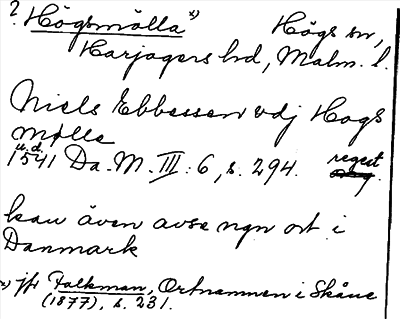 ? Högsmölla x) Högs sn,
Harjagers hd, Malm. l.
Niels Ebbessen vdj Hogs
Mølle
u.d.
1541 Da. M. III: 6, s. 294. regest
kan även avse ngn ort i
Danmark
x) jfr Falkman, Ortnamnen i Skåne
(1877), s. 231.